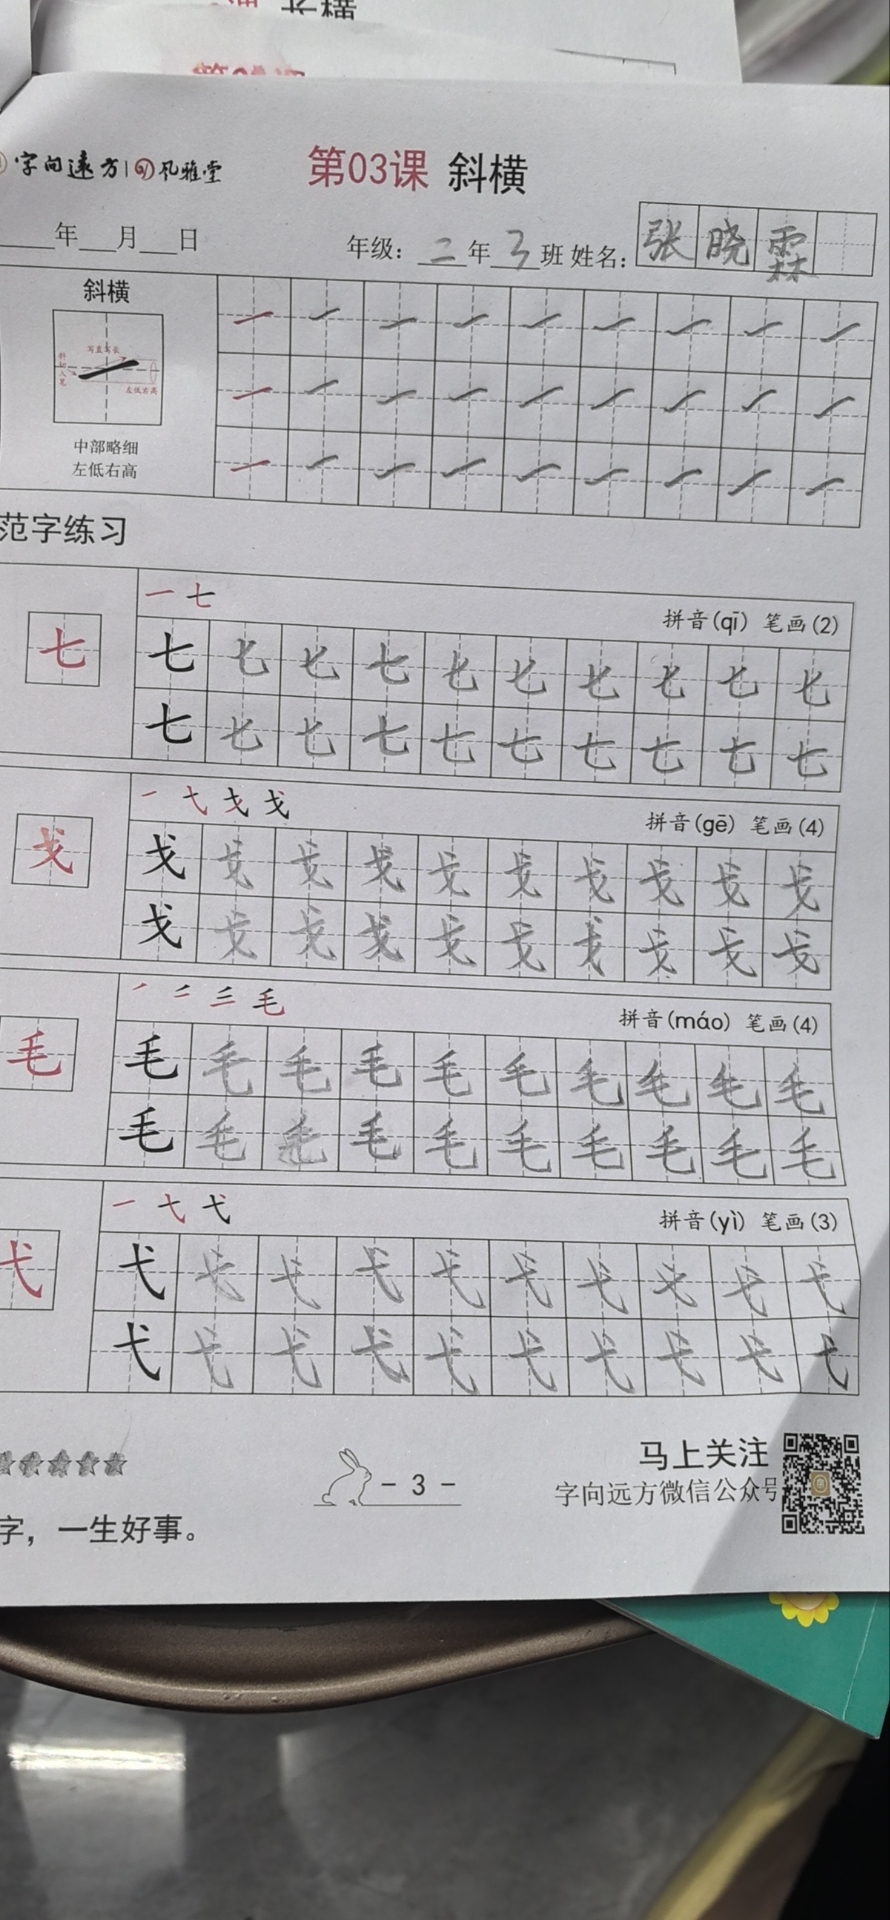 长横
字向远方 风雅堂
第03课 斜横
年 月 日 年级: 二 年 3 班 姓名: 张晓霖
斜横
写直写长
左低右高
中部略细
左低右高
范字练习
一 七
拼音(qī) 笔画(2)
七 七 七 七 七 七 七 七 七 七 七
七 七 七 七 七 七 七 七 七 七
一 弋 戈 戈
拼音(gē) 笔画(4)
戈 戈 戈 戈 戈 戈 戈 戈 戈 戈 戈
戈 戈 戈 戈 戈 戈 戈 戈 戈 戈
毛
拼音(máo) 笔画(4)
毛 毛 毛 毛 毛 毛 毛 毛 毛 毛 毛
毛 毛 毛 毛 毛 毛 毛 毛 毛 毛
一 弋 弋
拼音(yì) 笔画(3)
弋 弋 弋 弋 弋 弋 弋 弋 弋 弋 弋
弋 弋 弋 弋 弋 弋 弋 弋 弋 弋
- 3 -
马上关注
字向远方微信公众号
字，一生好事。